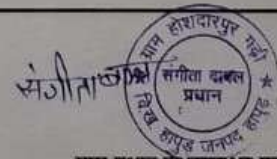 संगीता
ग्राम होशदारपुर गढ़ी
संगीता दावल
प्रधान
वि०ख० हापुड़ जनपद हापुड़